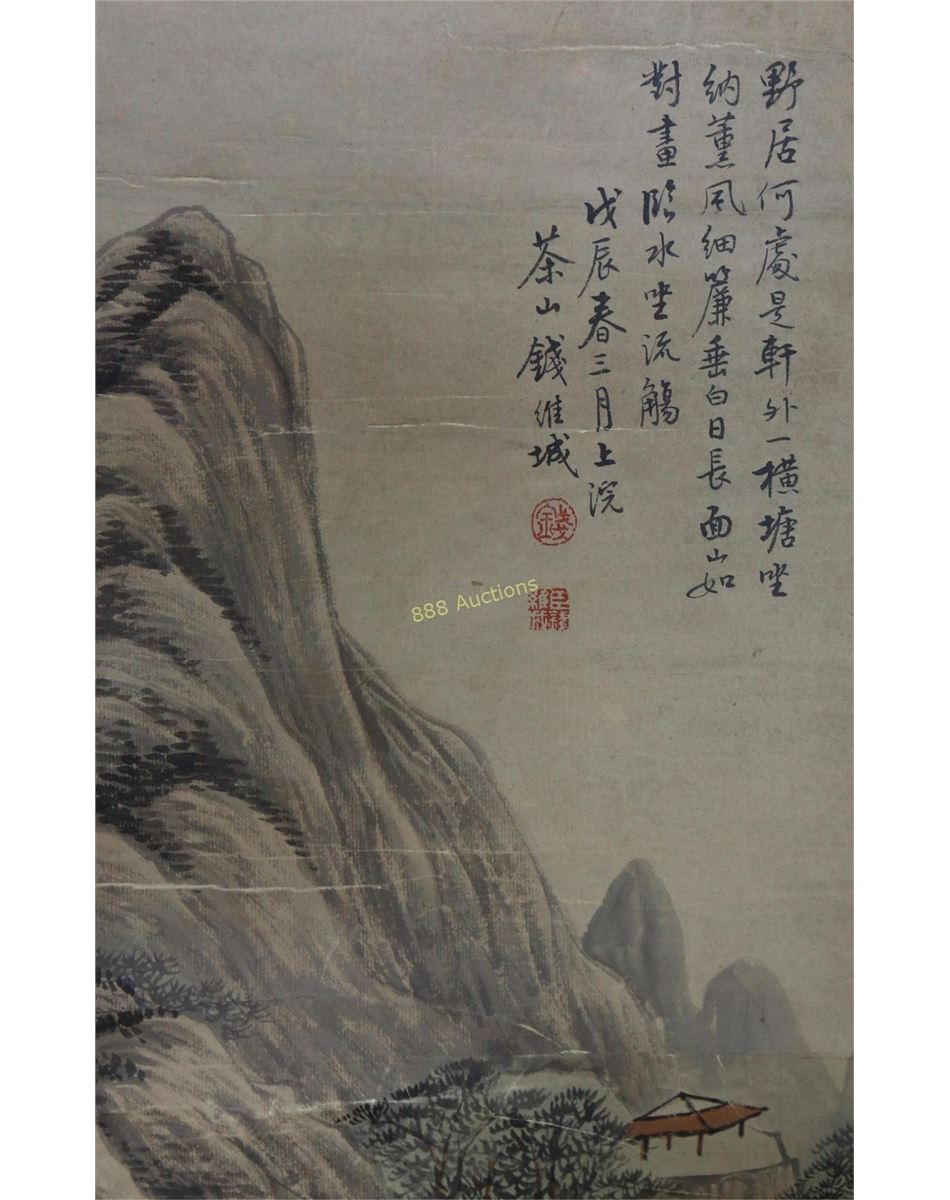 野居何處是軒外一橫塘坐
納薰風細簾垂白日長面山如
對畫臨水坐流觴
戊辰春三月上浣
茶山錢維城
錢
臣錢維城
888 Auctions